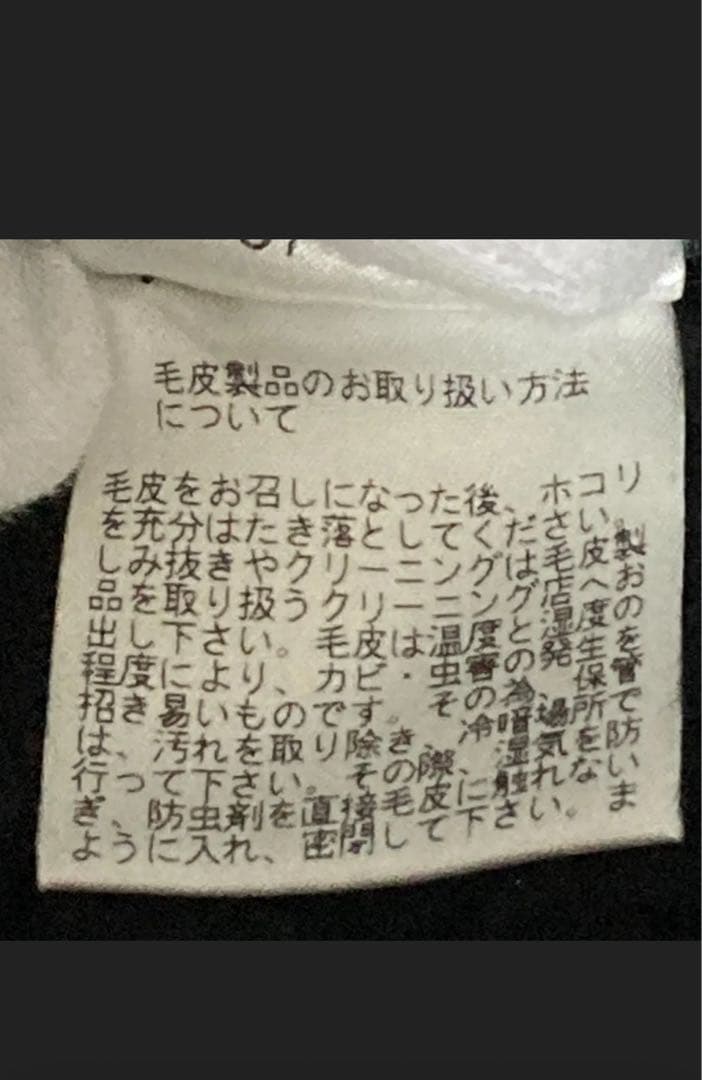 毛皮製品のお取り扱い方法
について
毛皮をお召しになった後、ホコリ
を充分はたき落としてください。
しみ抜きやクリーニングは毛皮製
品を取り扱うクリーニング店へお
出し下さい。毛皮は温度と湿度の
程度により、カビ・虫害の発生を
招き易いものです。その為、保管
は、汚れを取り除き、冷暗場所で
行って下さい。その際、湿気を防
ぎ、防虫剤を直接毛皮に触れない
ように入れ、密閉して下さい。ま